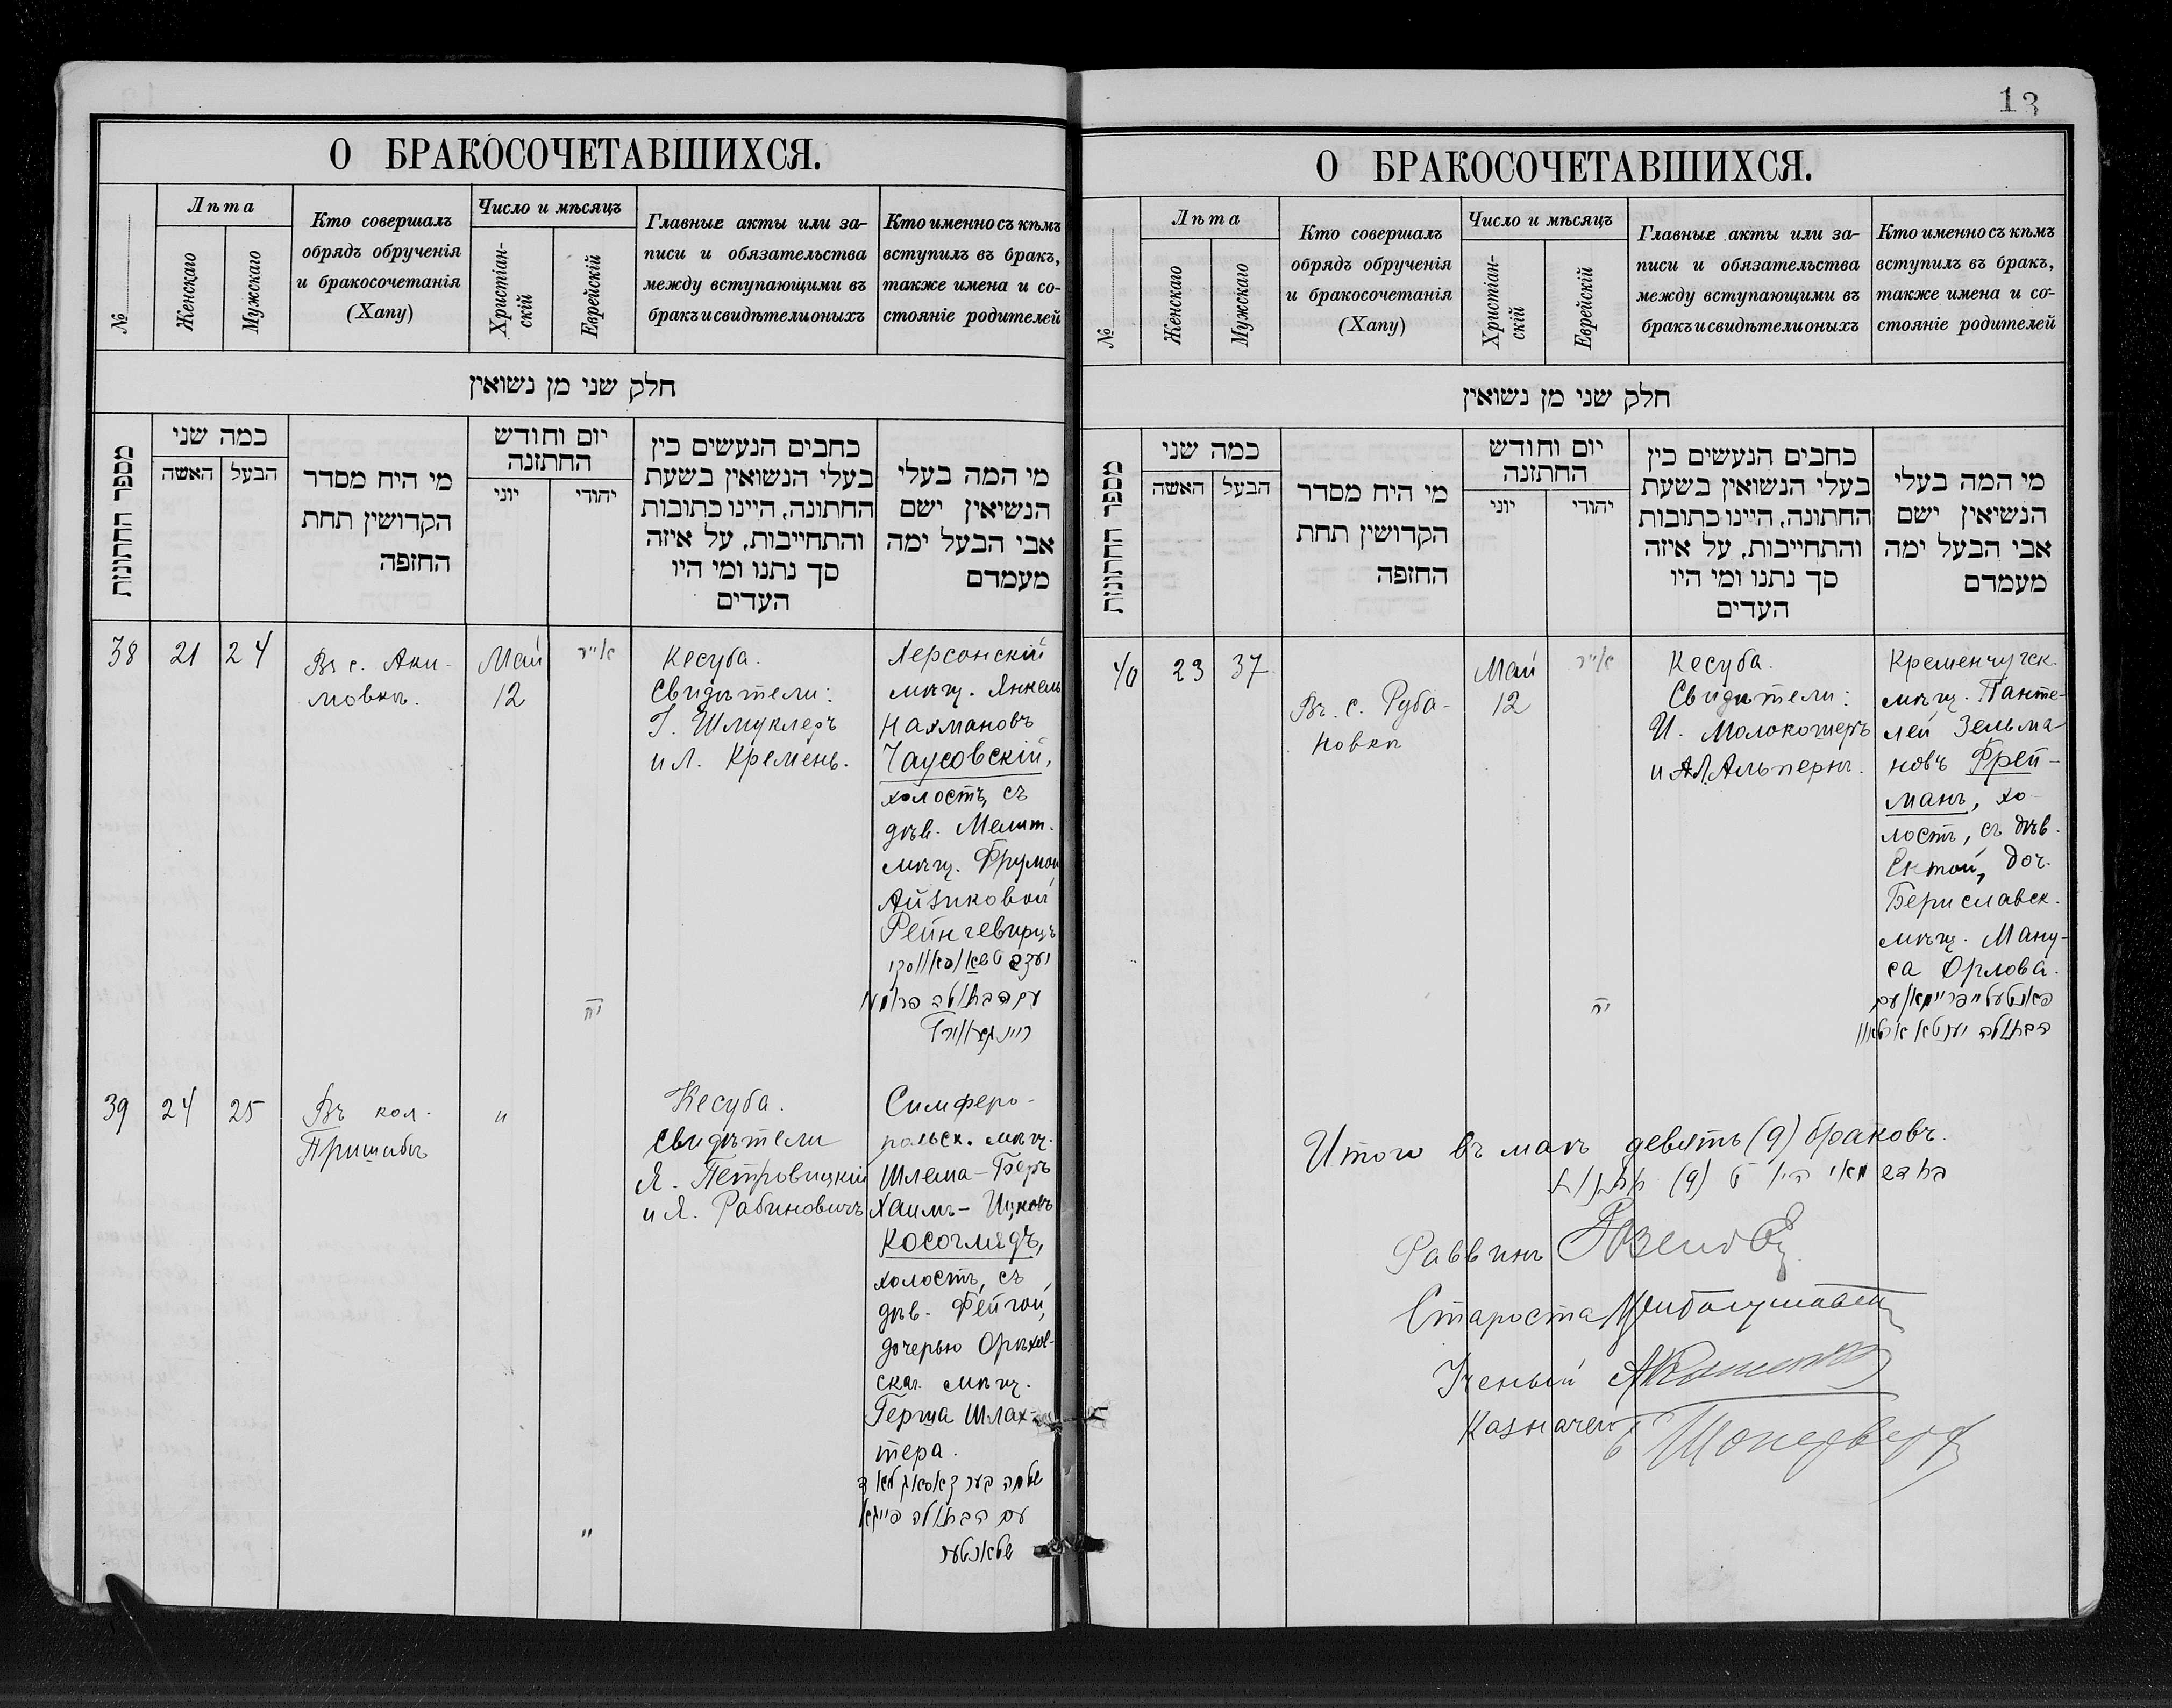 О БРАКОСОЧЕТАВШИХСЯ.
№
Лѣта
Женскаго
Мужскаго
Кто совершалъ
обрядъ обрученія
и бракосочетанія
(Хапу)
Число и мѣсяцъ
Христіан-
скій
Еврейскій
Главные акты или за-
писи и обязательства
между вступающими въ
бракъ и свидѣтели оныхъ
Кто именно съ кѣмъ
вступилъ въ бракъ,
также имена и со-
стояніе родителей
חלק שני מן נשואין
מספר החתונות
כמה שני
האשה
הבעל
מי היח מסדר
הקדושין תחת
החופה
יום וחודש
החתונה
יוני
יהודי
כחבים הנעשים כין
בעלי הנשואין בשעת
החתונה, היינו כתובות
והתחייבות, על איזה
סך נתנו ומי היו
העדים
מי המה בעלי
הנשיאין ישם
אבי הבעל ימה
מעמדם
38
21
24
Въ с. Аки-
мовкѣ.
Май
12
אייר
יח
Кесуба.
Свидѣтели:
Г. Шмуклеръ
и Л. Кремень.
Херсонскій
мѣщ. Янкель
Нахмановъ
Чаусовскій,
холостъ, съ
дѣв. Мелит.
мѣщ. Фрумой
Айзиковой
Рейнгевирцъ
עם הבתולה פרומא
39
24
25
Въ кол.
Пришибъ
"
"
Кесуба.
Свидѣтели
Я. Петровицкій
и Я. Рабиновичъ
Симферо-
польск. мѣщ.
Шлема-Беръ
Хаимъ-Ицковъ
Косоглядъ,
холостъ, съ
дѣв. Фейгой,
дочерью Орѣхов-
скаг. мѣщ.
Герша Шлах-
тера.
שלמה בער קאסאגלאד
עם הבתולה פייגא
שלאכטער
13
О БРАКОСОЧЕТАВШИХСЯ.
№
Лѣта
Женскаго
Мужскаго
Кто совершалъ
обрядъ обрученія
и бракосочетанія
(Хапу)
Число и мѣсяцъ
Христіан-
скій
Еврейскій
Главные акты или за-
писи и обязательства
между вступающими въ
бракъ и свидѣтели оныхъ
Кто именно съ кѣмъ
вступилъ въ бракъ,
также имена и со-
стояніе родителей
חלק שני מן נשואין
מספר החתונות
כמה שני
האשה
הבעל
מי היח מסדר
הקדושין תחת
החופה
יום וחודש
החתונה
יוני
יהודי
כחבים הנעשים כין
בעלי הנשואין בשעת
החתונה, היינו כתובות
והתחייבות, על איזה
סך נתנו ומי היו
העדים
מי המה בעלי
הנשיאין ישם
אבי הבעל ימה
מעמדם
40
23
37
Въ с. Руба-
новкѣ
Май
12
אייר
יח
Кесуба.
Свидѣтели:
И. Молокотеръ
и А Л Альпернъ.
Кременчугск.
мѣщ. Панте-
лей Зельма-
новъ Фрей-
манъ, хо-
лостъ, съ дѣв.
Ентой, доч.
Бериславск.
мѣщ. Ману-
са Орлова.
הבתולה יענטא
Итого въ маѣ девять (9) браковъ.
בחדש מאי היו ט (9) חתונות
Раввинъ
Староста
Ученый
Казначей